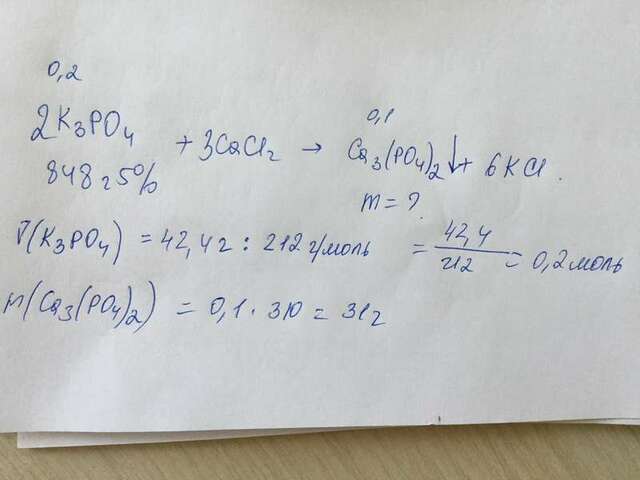 0,2
0,1
2K₃PO₄ + 3CaCl₂ → Ca₃(PO₄)₂↓ + 6KCl.
848 г 5%
m = ?
ν(K₃PO₄) = 42,4 г : 212 г/моль = 42,4/212 = 0,2 моль
m(Ca₃(PO₄)₂) = 0,1 · 310 = 31 г